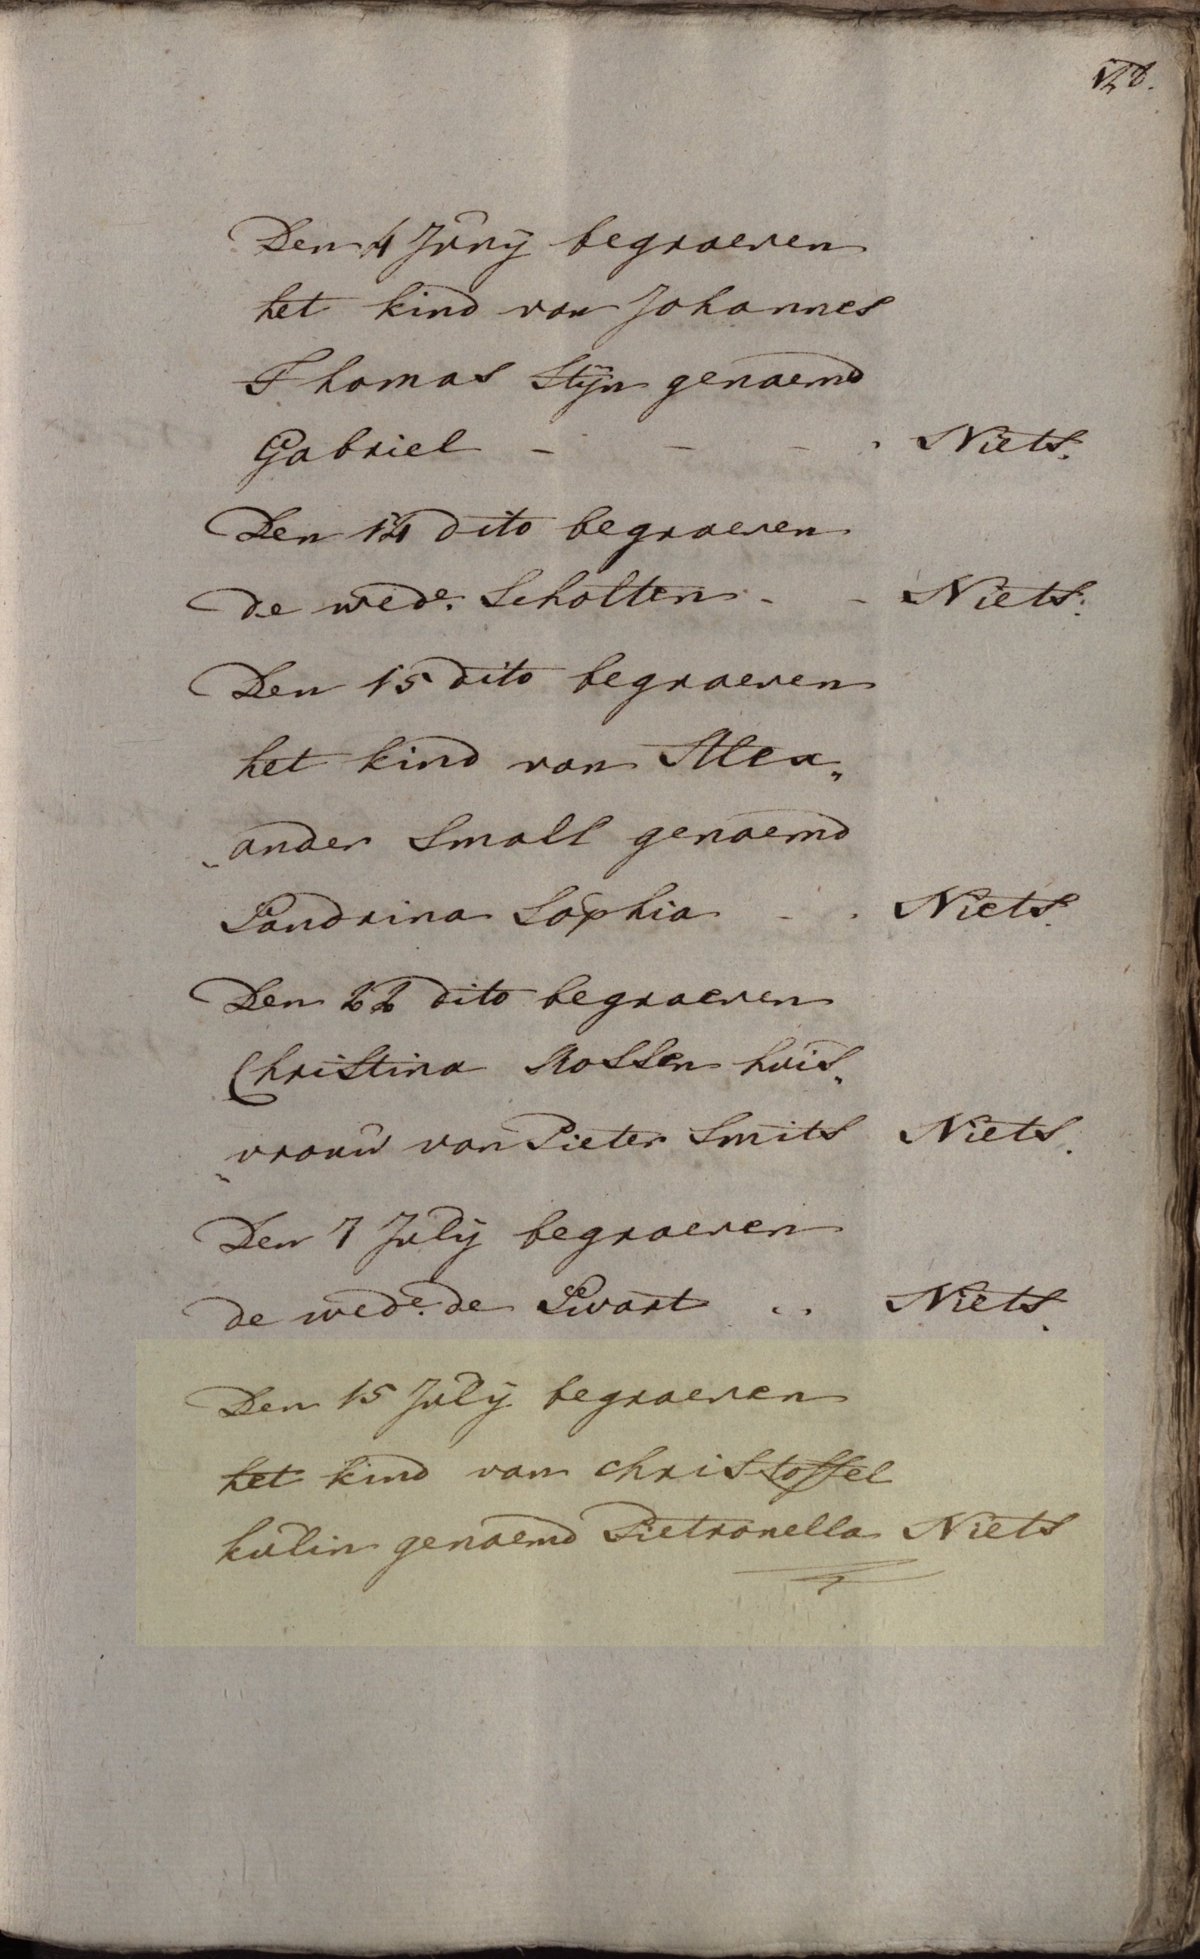 128.
Den 4 Junij begraeven
het kind van Johannes
Thomas Stijn genaemd
Gabriel - - - . Niets.
Den 14 dito begraeven
de wede. Scholten - - Niets.
Den 15 dito begraeven
het kind van Alex„
„ander Small genaemd
Sandrina Sophia - . Niets.
Den 22 dito begraeven
Christina Rossen huis„
„vrouw van Pieter Smits Niets.
Den 7 Julij begraeven
de wede. de Swart . . Niets.
Den 15 Julij begraeven
het kind van Christoffel
kulin genaemd Pietronella Niets